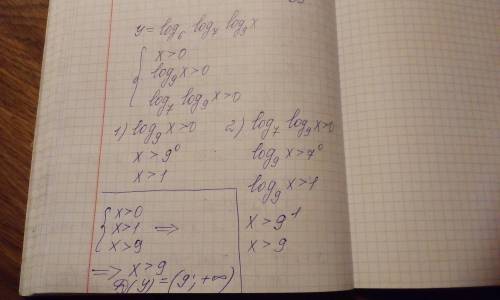 y = log₆ log₇ log₉ x
{ x > 0
log₉ x > 0
log₇ log₉ x > 0
1) log₉ x > 0
x > 9⁰
x > 1
2) log₇ log₉ x > 0
log₉ x > 7⁰
log₉ x > 1
x > 9¹
x > 9
{ x > 0
x > 1 ⇒
x > 9
⇒ x > 9
D(y) = (9; +∞)